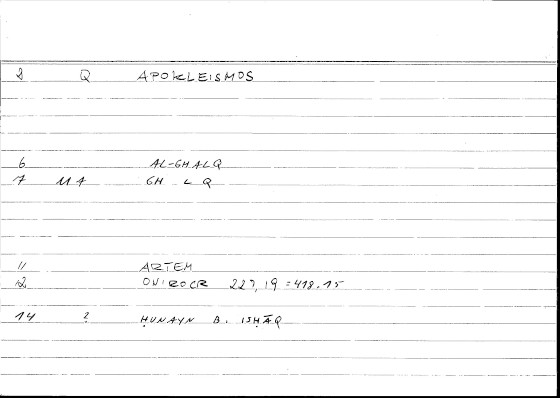 2 Q APOKLEISMOS
6 AL-GHALQ
7 MA GH L Q
11 ARTEM
12 ONIROCR 227,19 = 418.15
14 ? ḤUNAYN B. ISḤĀQ